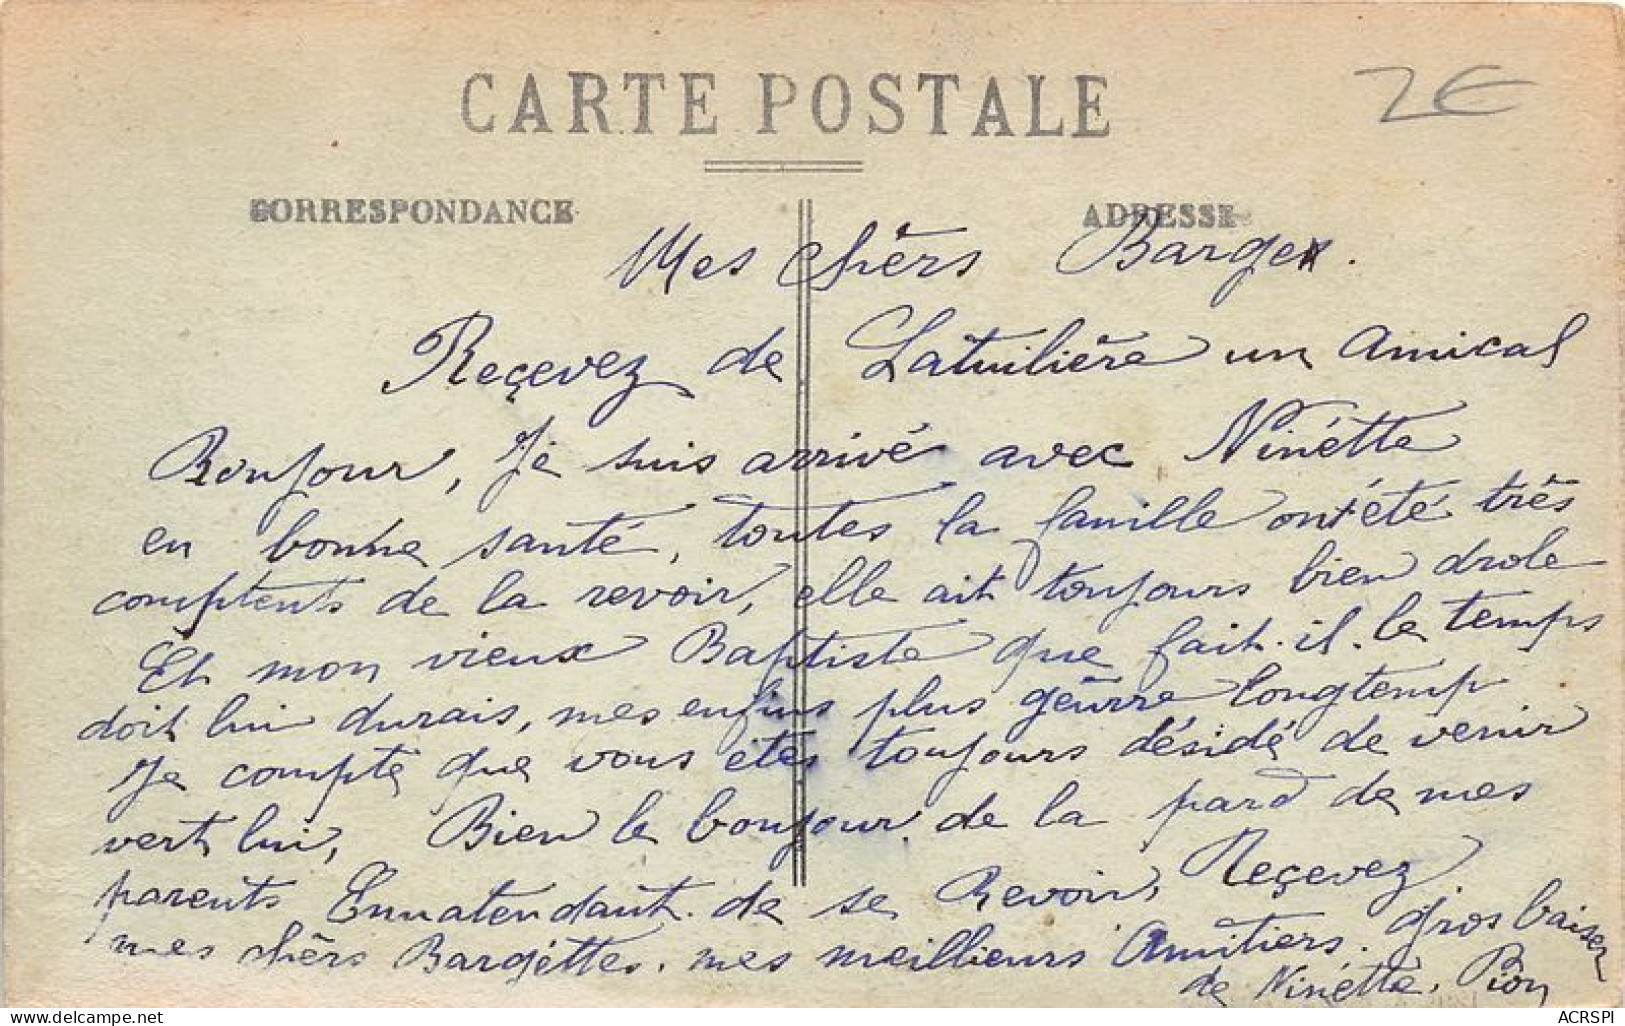 CARTE POSTALE
2€
CORRESPONDANCE
ADRESSE
Mes chêrs Barges.
Reçevez de Latuilière un amical
Bonjour, Je suis arrivé avec Ninétte
en bonne santé, toutes la famille ont été très
comptents de la revoir, elle ait toujours bien drole
Et mon vieux Baptiste que fait-il. le temps
doit lui durais, mes enfins plus gèurre longtemp
Je compte que vous étes toujours désidé de venir
vert lui, Bien le bonjour de la pard de mes
parents Ennatendant de se Revoir, Reçevez
mes chêrs Bargéttes. mes meillieurs Amitiers. gros baiser
de Ninétte. Pion
ACRSPI